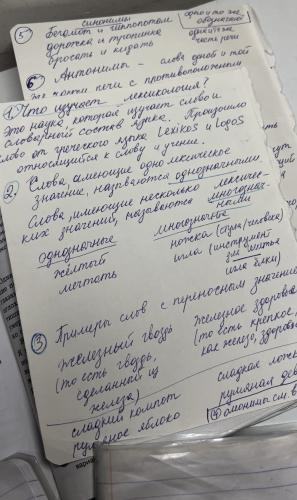 синонимы
⑤ Бегемот и гиппопотам
дорожка и тропинка
бросать и кидать
одно и то же
часть речи
Антонимы - слова одной и той
же части речи с противоположным
① Что изучает лексикология?
Это наука, которая изучает слово и
словарный состав языка. Произошло
слово от греческого языка Lexikos и Logos
относящийся к слову и учение.
② Слова, имеющие одно лексическое
значение, называются однозначными.
Слова, имеющие несколько лексичес-
ких значений, называются многознач-
ными
однозначные многозначные
жёлтый ножка (стула/человека)
мечтать игла (инструмент
для шитья
игла ёлки)
③ Примеры слов с переносным значение
Железный гвоздь Железное здоровье
(то есть гвоздь, (то есть крепкое,
сделанный из как железо, здоровье
железа)
сладкий компот сладкая ложь
румяное яблоко румяная дев
④ омонимы см. в